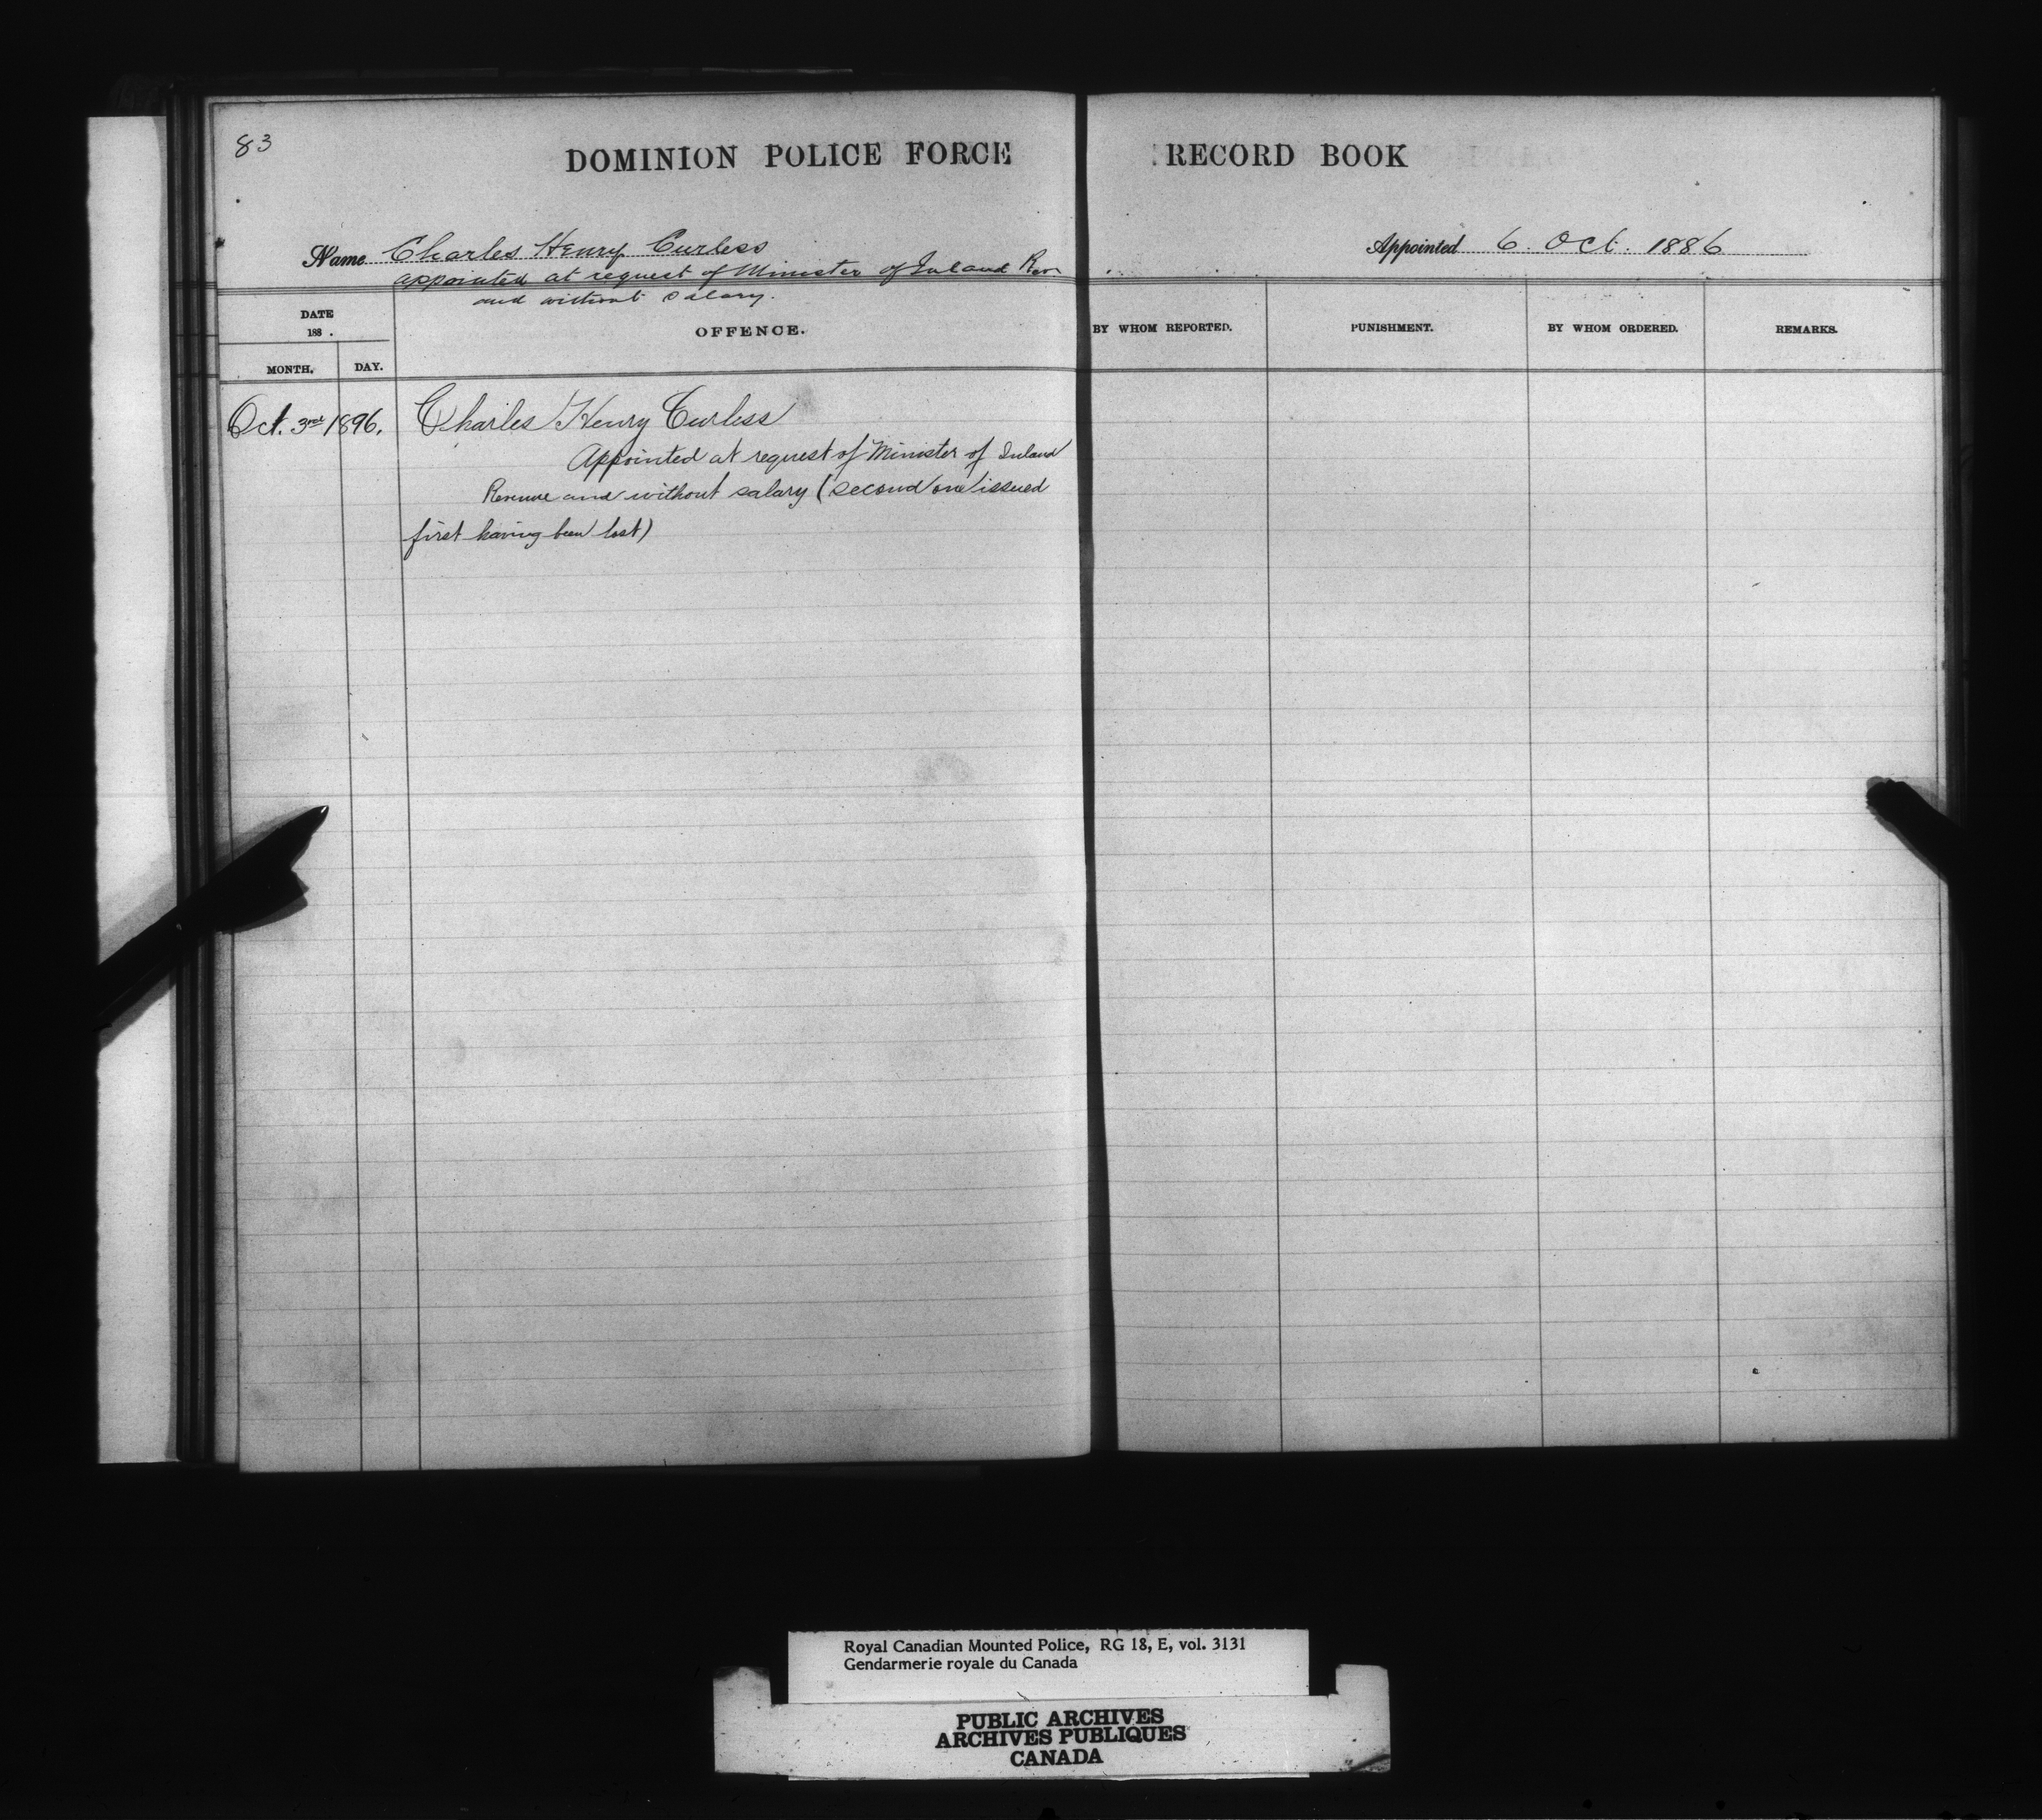 83
DOMINION POLICE FORCE RECORD BOOK
Name Charles Henry Curless
Appointed 6. Oct. 1886
appointed at request of Minister of Inland Rev
and without salary.
DATE
188 .
MONTH. DAY.
OFFENCE.
BY WHOM REPORTED.
PUNISHMENT.
BY WHOM ORDERED.
REMARKS.
Oct. 3rd 1896. Charles Henry Curless
Appointed at request of Minister of Inland
Revenue and without salary (second one issued
first having been lost)
Royal Canadian Mounted Police, RG 18, E, vol. 3131
Gendarmerie royale du Canada
PUBLIC ARCHIVES
ARCHIVES PUBLIQUES
CANADA